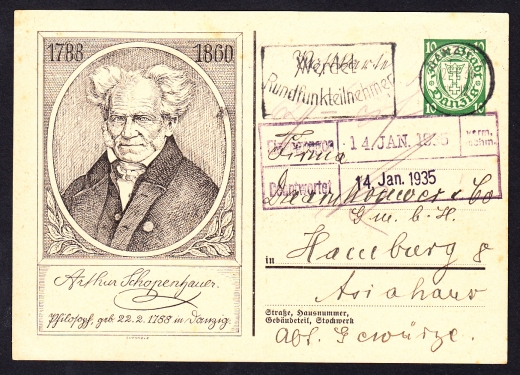 1788 1860
Arthur Schopenhauer.
Philosoph, geb. 22.2.1788 in Danzig.
Werdet
Rundfunkteilnehmer
10 10
Danzig
10 10
Firma
14 JAN. 1935
Beantwortet 14. Jan. 1935
& Co
G.m.b.H.
in Hamburg 8
Asiahaus
Straße, Hausnummer,
Gebäudeteil, Stockwerk
Abt. Gewürze.